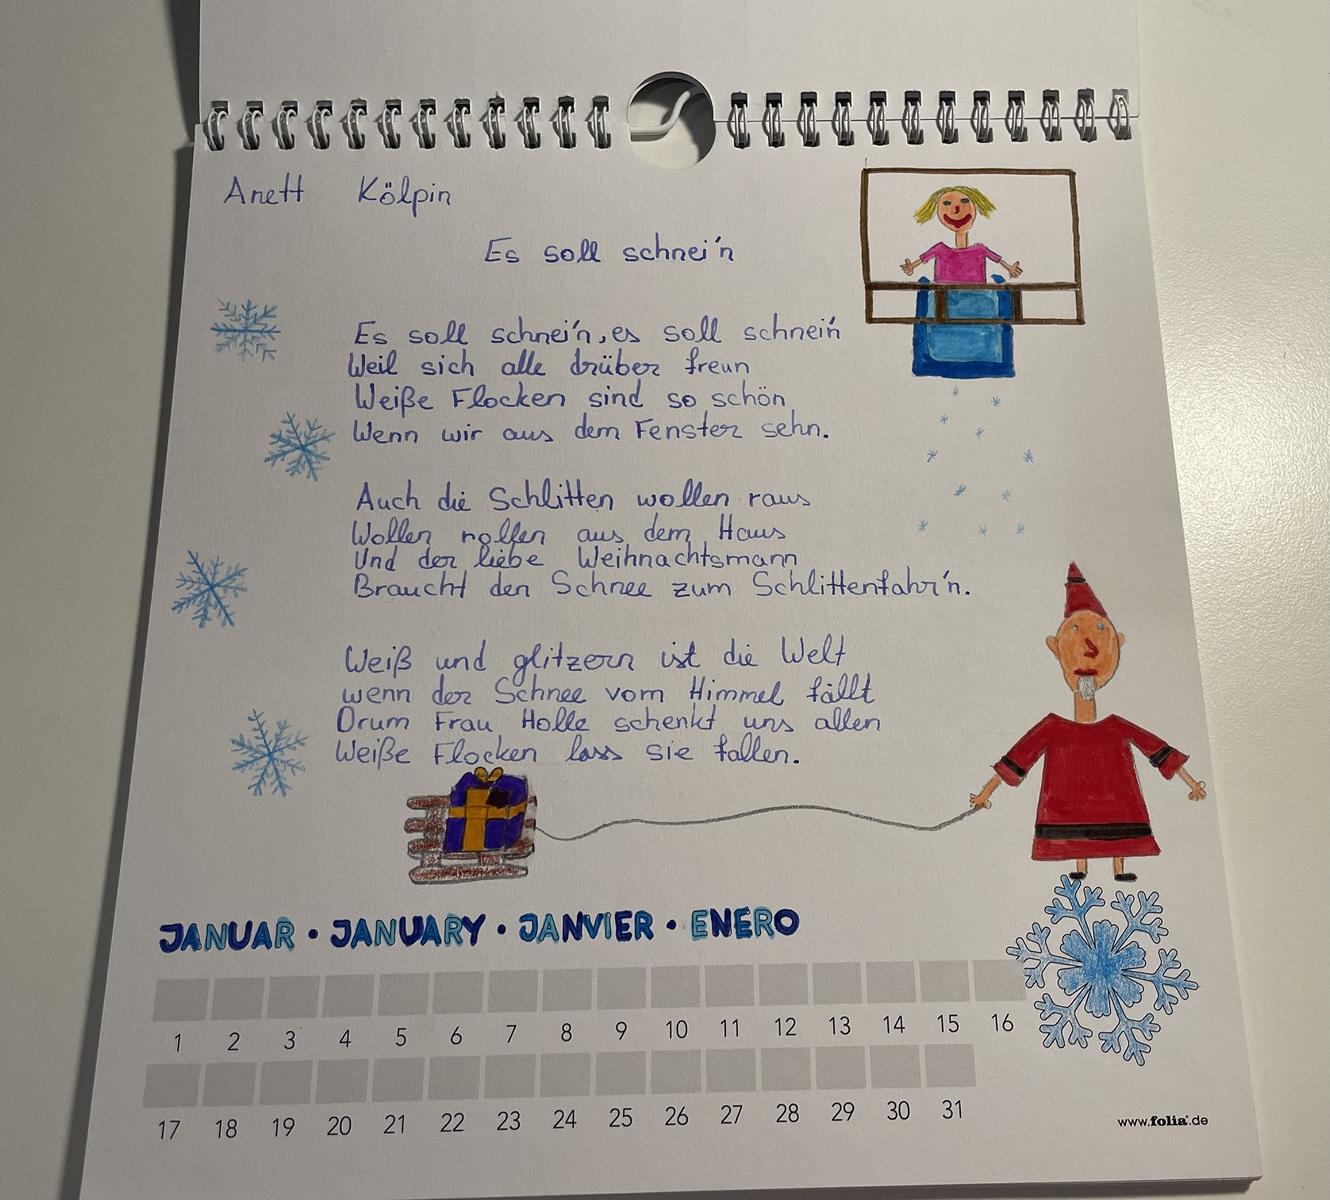 Anett Kölpin
Es soll schnei'n
Es soll schnei'n, es soll schnei'n
Weil sich alle drüber freun
Weiße Flocken sind so schön
Wenn wir aus dem Fenster sehn.
Auch die Schlitten wollen raus
Wollen rollen aus dem Haus
Und der liebe Weihnachtsmann
Braucht den Schnee zum Schlittenfahr'n.
Weiß und glitzern ist die Welt
wenn der Schnee vom Himmel fällt
Drum Frau Holle schenkt uns allen
Weiße Flocken lass sie fallen.
JANUAR • JANUARY • JANVIER • ENERO
1 2 3 4 5 6 7 8 9 10 11 12 13 14 15 16
17 18 19 20 21 22 23 24 25 26 27 28 29 30 31
www.folia.de